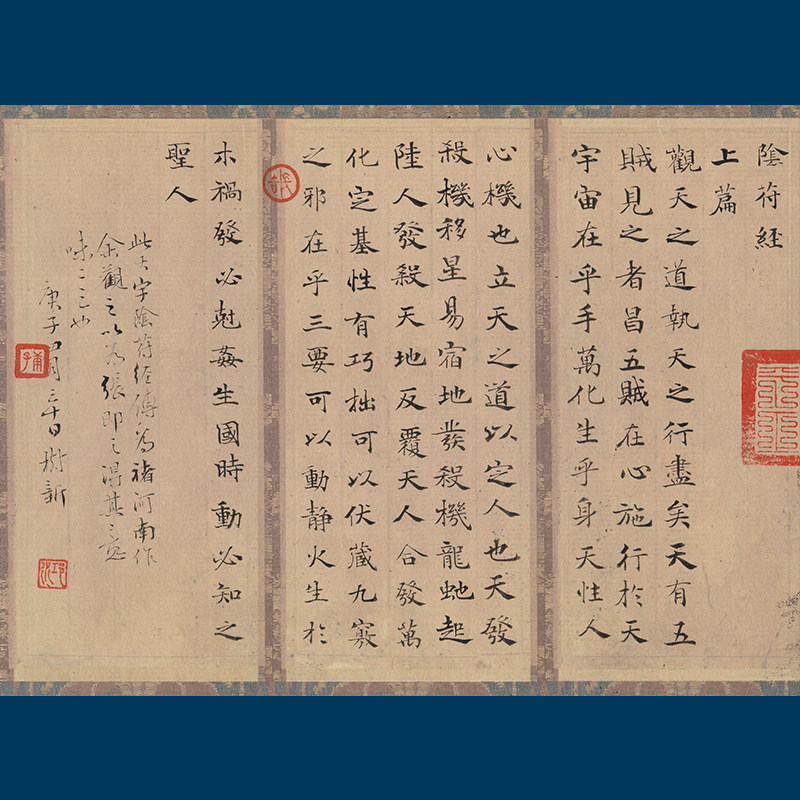 陰符經
上篇
觀天之道執天之行盡矣天有五
賊見之者昌五賊在心施行於天
宇宙在乎手萬化生乎身天性人
心機也立天之道以定人也天發
殺機移星易宿地發殺機龍虵起
陸人發殺天地反覆天人合發萬
化定基性有巧拙可以伏藏九竅
之邪在乎三要可以動靜火生於
木禍發必尅姦生國時動必知之
聖人
此大字陰符經傳為褚河南作
余觀之以為張即之得其三昧
味之三也
庚子四月三十日樹新